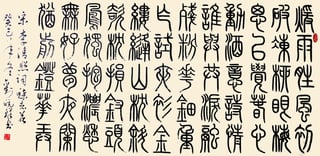 暖雨晴風初
破凍柳眼梅
腮已覺春心
動酒意詩情
誰與共淚融
殘粉花鈿重
乍試夾衫金
縷縫山枕斜
欹枕損釵頭
鳳獨抱濃愁
無好夢夜闌
猶剪燈花弄
宋李清照詞蝶戀花
癸巳年冬劉書